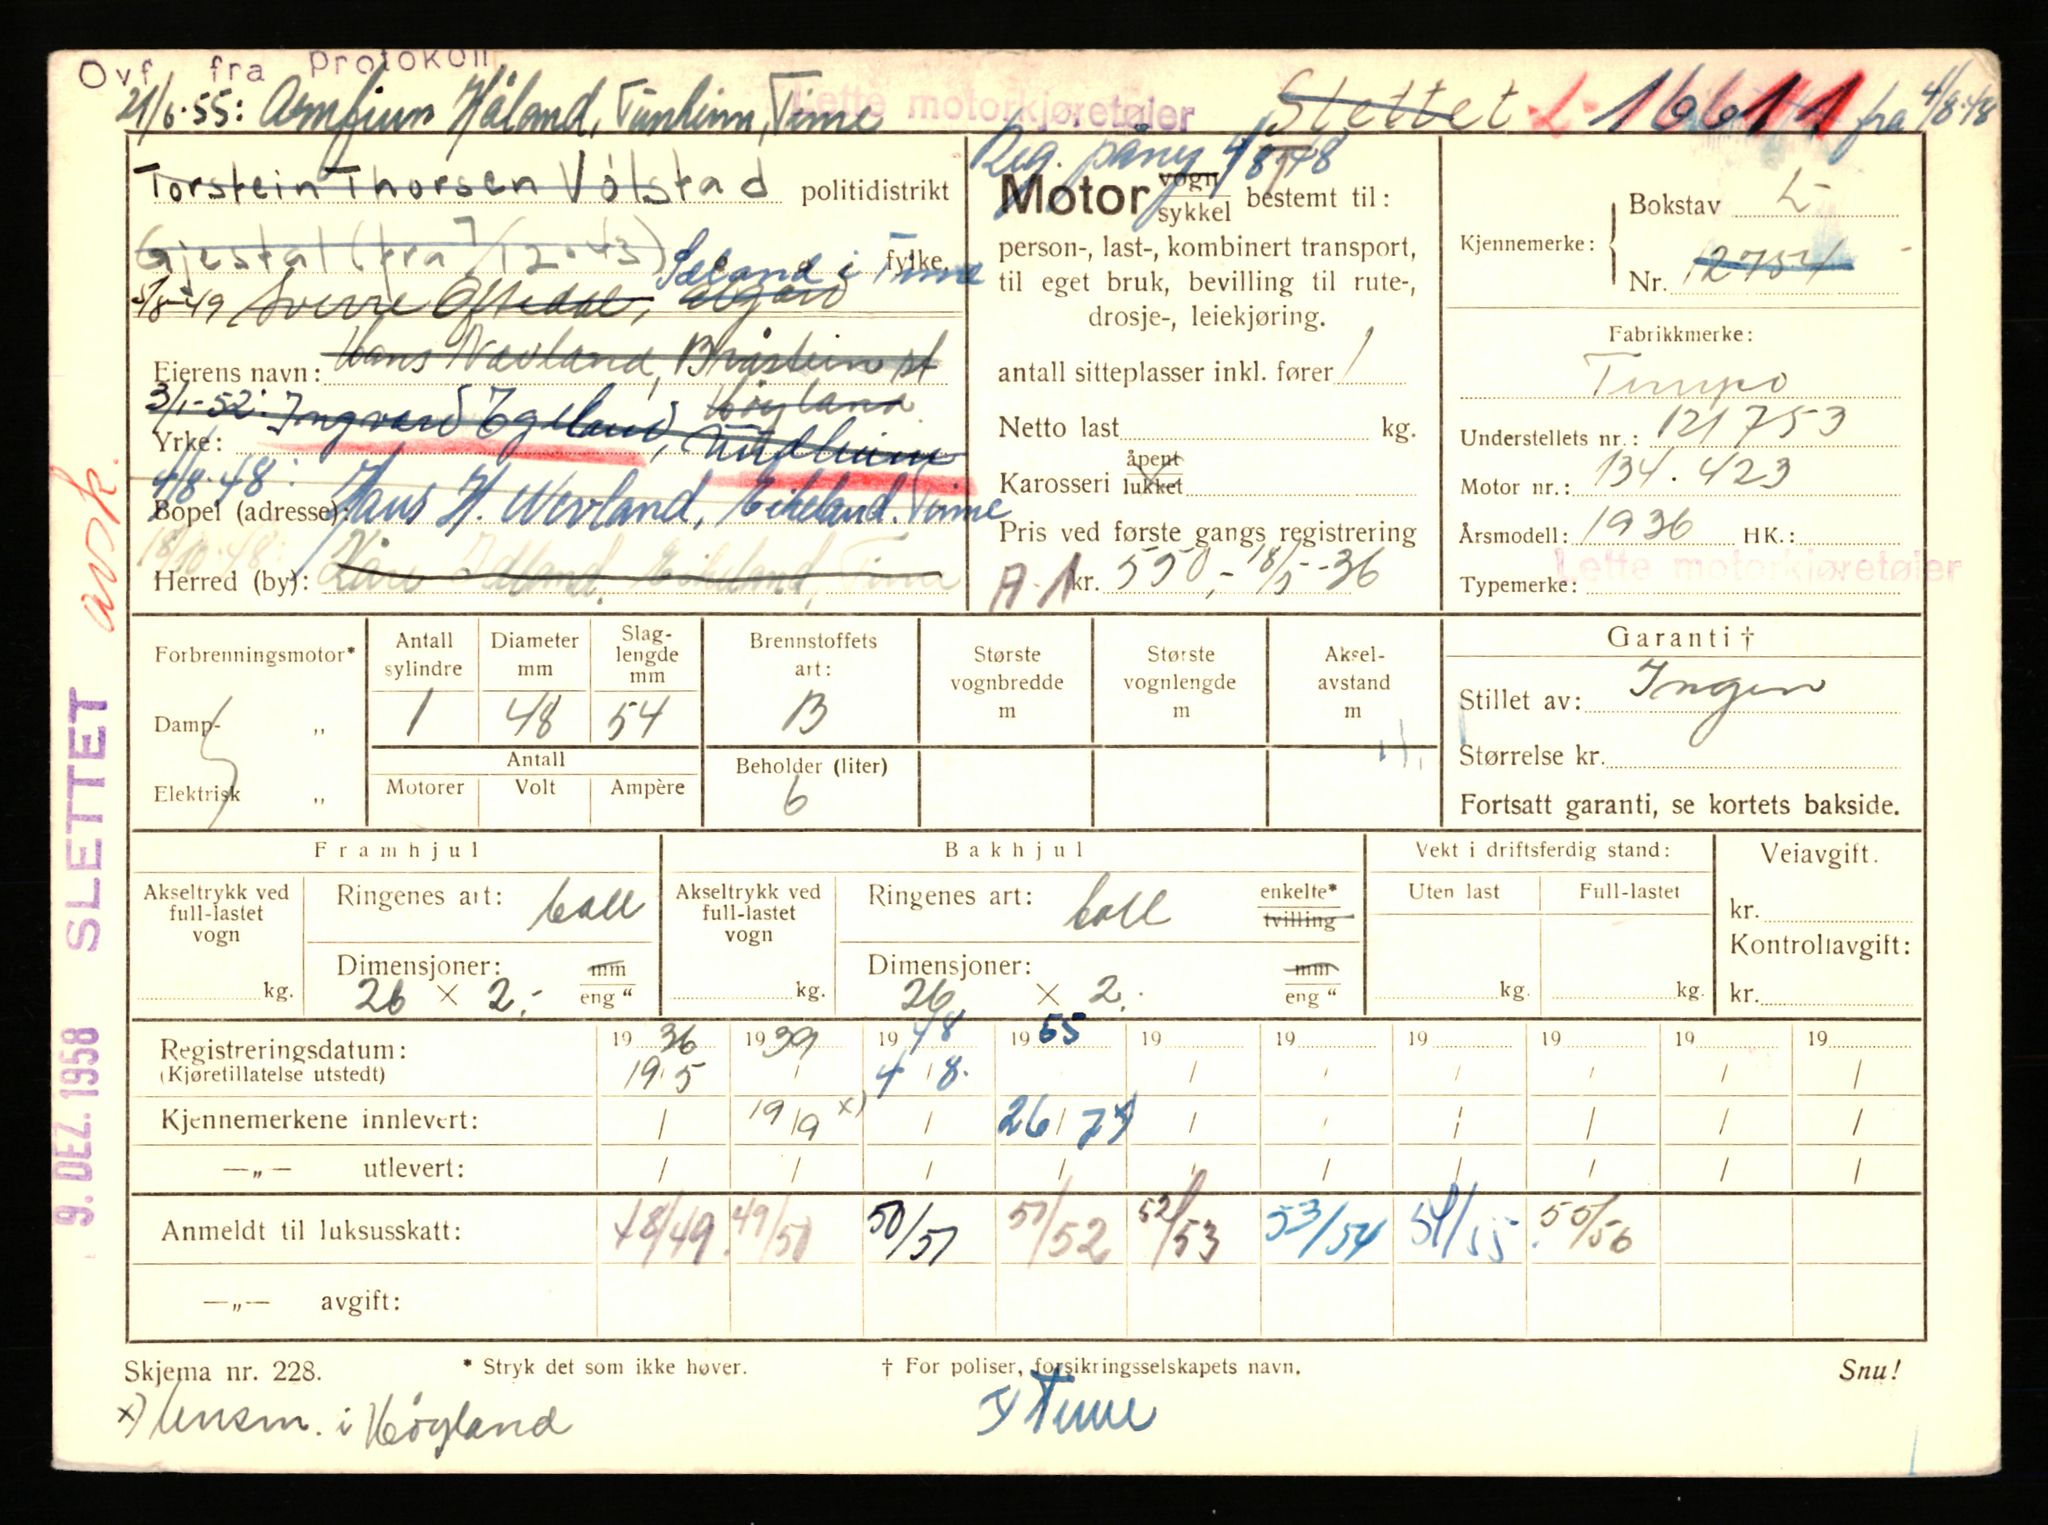 Ovf. fra protokoll
21/6-55: Arnfinn Håland, Tunheim, Time
Lette motorkjøretøier
Slettet L-16611 fra 4/8-48
Torstein Thorsen Vólstad politidistrikt
Gjestal (fra 7/12-43) Sæland i Time fylke
5/8-49 Sverre Oftedal, Ålgård
Eierens navn: Hans Nævland, Bråstein st
Høyland
3/1-52: Ingvard Egeland, Tundheim
Yrke:
4/8-48: Hans H. Nevland, Eikeland, Time
Bopel (adresse):
18/10-48: Kåre Idland, Eikeland, Time
Herred (by):
Reg. påny 4/8 48
Motor vogn sykkel bestemt til:
person-, last-, kombinert transport,
til eget bruk, bevilling til rute-,
drosje-, leiekjøring.
antall sitteplasser inkl. fører 1
Netto last kg.
Karosseri åpent lukket
Pris ved første gangs registrering
A-1 kr. 550,- 18/5-36
Kjennemerke: Bokstav L
Nr. 12754
Fabrikkmerke:
Tempo
Understellets nr.: 121753
Motor nr.: 134.423
Årsmodell: 1936 HK.:
Lette motorkjøretøier
Typemerke:
Forbrenningsmotor*
Damp- „
Elektrisk „
Antall sylindre 1
Diameter mm 48
Slaglengde mm 54
Antall
Motorer Volt Ampère
Brennstoffets art: B
Beholder (liter) 6
Største vognbredde m
Største vognlengde m
Aksel-avstand m
Garanti †
Stillet av: Ingen
Størrelse kr.
Fortsatt garanti, se kortets bakside.
Framhjul
Akseltrykk ved full-lastet vogn kg.
Ringenes art: ball
Dimensjoner: mm eng "
26 x 2.-
Bakhjul
Akseltrykk ved full-lastet vogn kg.
Ringenes art: ball enkelte* tvilling
Dimensjoner: mm eng "
26 x 2.-
Vekt i driftsferdig stand:
Uten last Full-lastet
kg. kg.
Veiavgift.
kr.
Kontrollavgift:
kr.
Registreringsdatum: 1936 1939 1948 1955 19 19 19 19 19 19
(Kjøretillatelse utstedt) 19/5 / 4/8. / / / / / / /
Kjennemerkene innlevert: / 19/9 x) / 26/7 / / / / / /
—„— utlevert: / / / / / / / / / /
Anmeldt til luksusskatt: 48/49 49/50 50/51 51/52 52/53 53/54 54/55 55/56
—„— avgift:
Skjema nr. 228.
* Stryk det som ikke høver.
† For poliser, forsikringsselskapets navn.
Snu!
x) lensm. i Høyland
Time
avsk.
9. DEZ. 1958 SLETTET